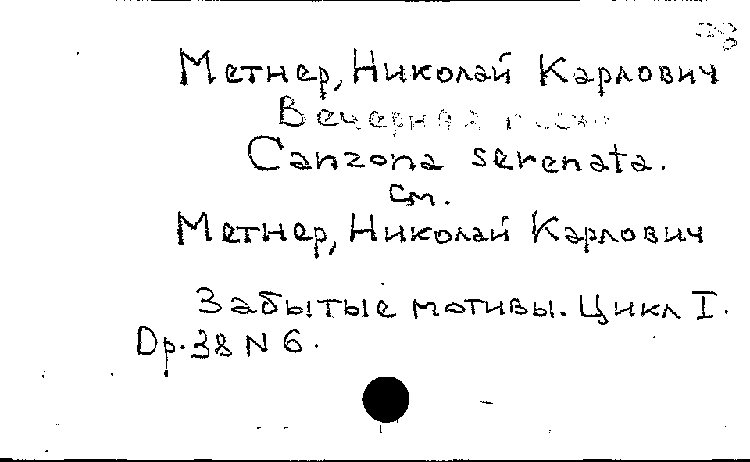 Метнер, Николай Карлович
Вечерная песнь
Canzona serenata.
см.
Метнер, Николай Карлович
Забытые мотивы. Цикл I.
Op. 38 N 6.